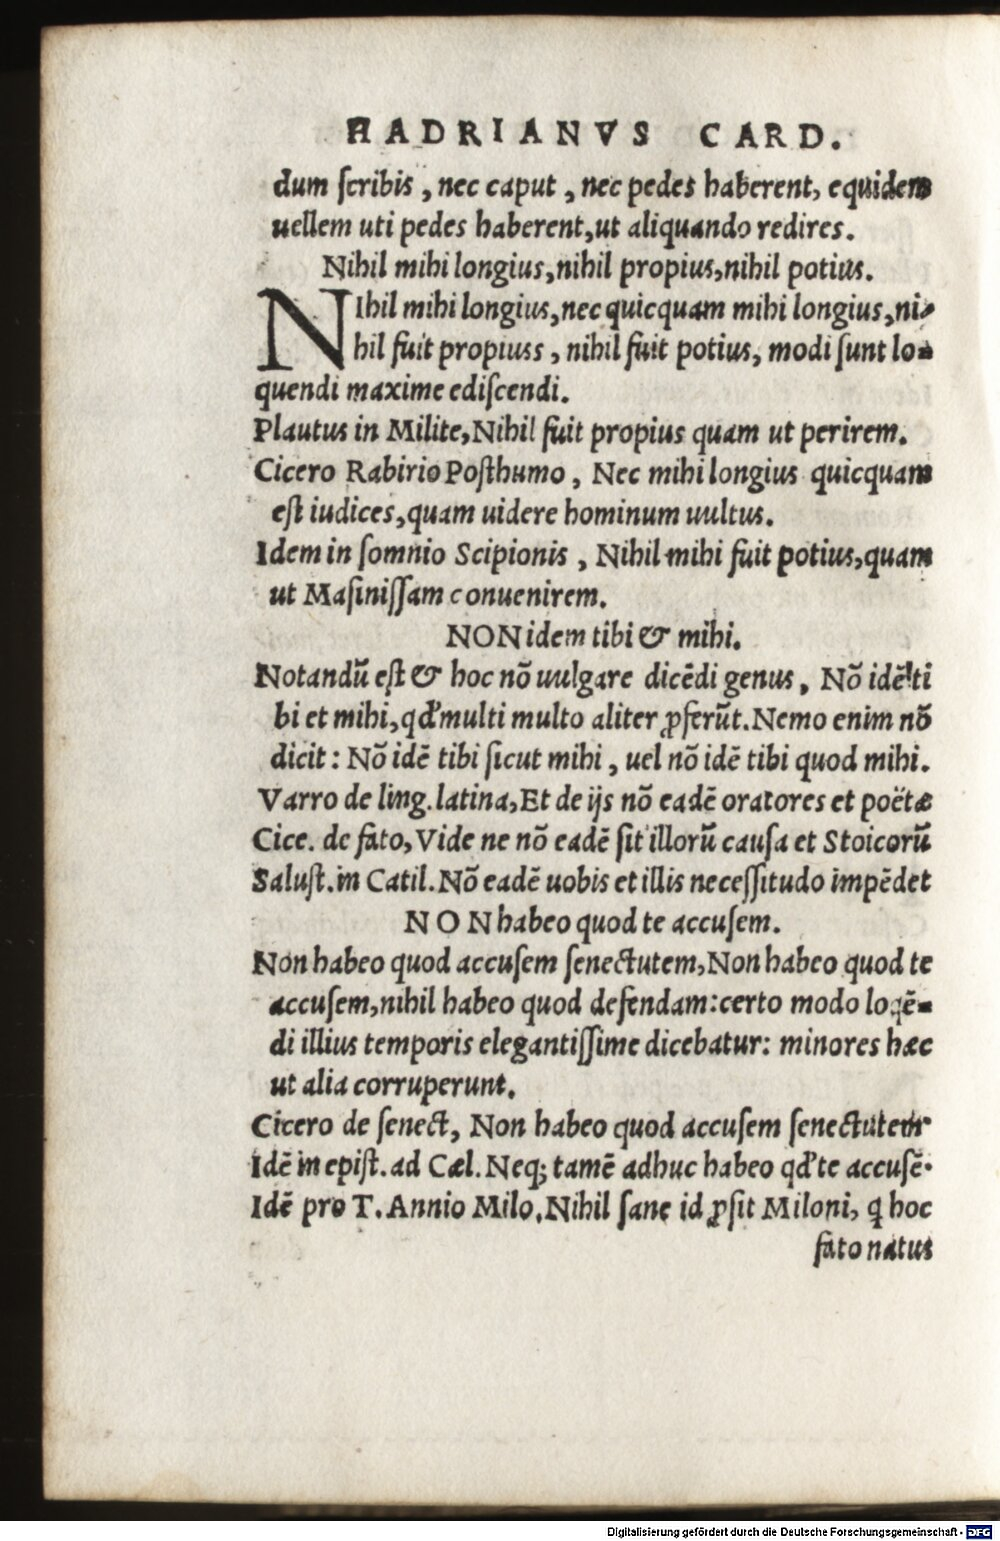 HADRIANVS CARD.
dum scribis, nec caput, nec pedes haberent, equidem
uellem uti pedes haberent,ut aliquando redires.
Nihil mihi longius,nihil propius,nihil potius.
NIhil mihi longius,nec quicquam mihi longius,ni-
hil fuit propiuss, nihil fuit potius, modi sunt lo-
quendi maxime ediscendi.
Plautus in Milite,Nihil fuit propius quam ut perirem.
Cicero Rabirio Posthumo, Nec mihi longius quicquam
est iudices,quam uidere hominum uultus.
Idem in somnio Scipionis, Nihil mihi fuit potius,quam
ut Masinissam conuenirem.
NON idem tibi & mihi.
Notandū est & hoc nō uulgare dicēdi genus, Nō idē ti
bi et mihi,qđ multi multo aliter ꝓferūt.Nemo enim nō
dicit: Nō idē tibi sicut mihi, uel nō idē tibi quod mihi.
Varro de ling.latina,Et de ijs nō eadē oratores et poëtæ
Cice. de fato, Vide ne nō eadē sit illorū causa et Stoicorū
Salust.in Catil.Nō eadē uobis et illis necessitudo impēdet
NON habeo quod te accusem.
Non habeo quod accusem senectutem,Non habeo quod te
accusem,nihil habeo quod defendam:certo modo loqē-
di illius temporis elegantissime dicebatur: minores hæc
ut alia corruperunt.
Cicero de senect, Non habeo quod accusem senectutem
Idē in epist.ad Cæl.Neqꝫ tamē adhuc habeo qđ te accusē.
Idē pro T.Annio Milo.Nihil sane id ꝓsit Miloni, q̃ hoc
fato natus
Digitalisierung gefördert durch die Deutsche Forschungsgemeinschaft - DFG